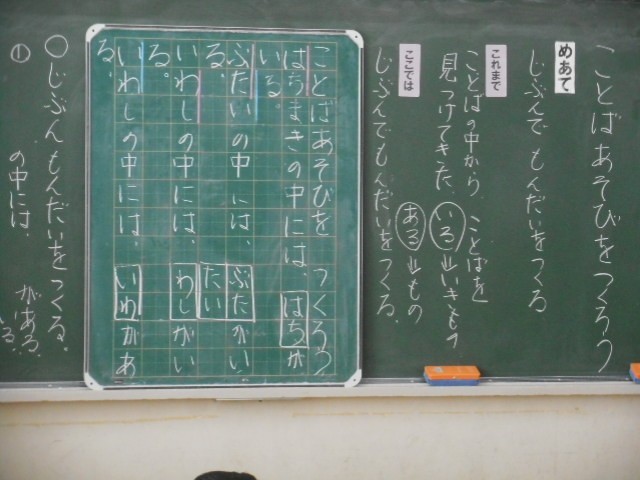 ことばあそびをつくろう
めあて
じぶんで もんだいをつくる
これまで
ことばの中から ことばを
見つけてきた。
いる⇒いきもの
ある⇒もの
ここでは
じぶんでもんだいをつくる。
ことばあそびを つくろう
はちまきの中には、はちが
いる。
ぶたいの中 には、ぶたがい
る。 たい
いわしの中には、わしがい
る。
いわしの中には、いわがあ
る。
○じぶんもんだいをつくる。
①
の中には、
がある
いる。